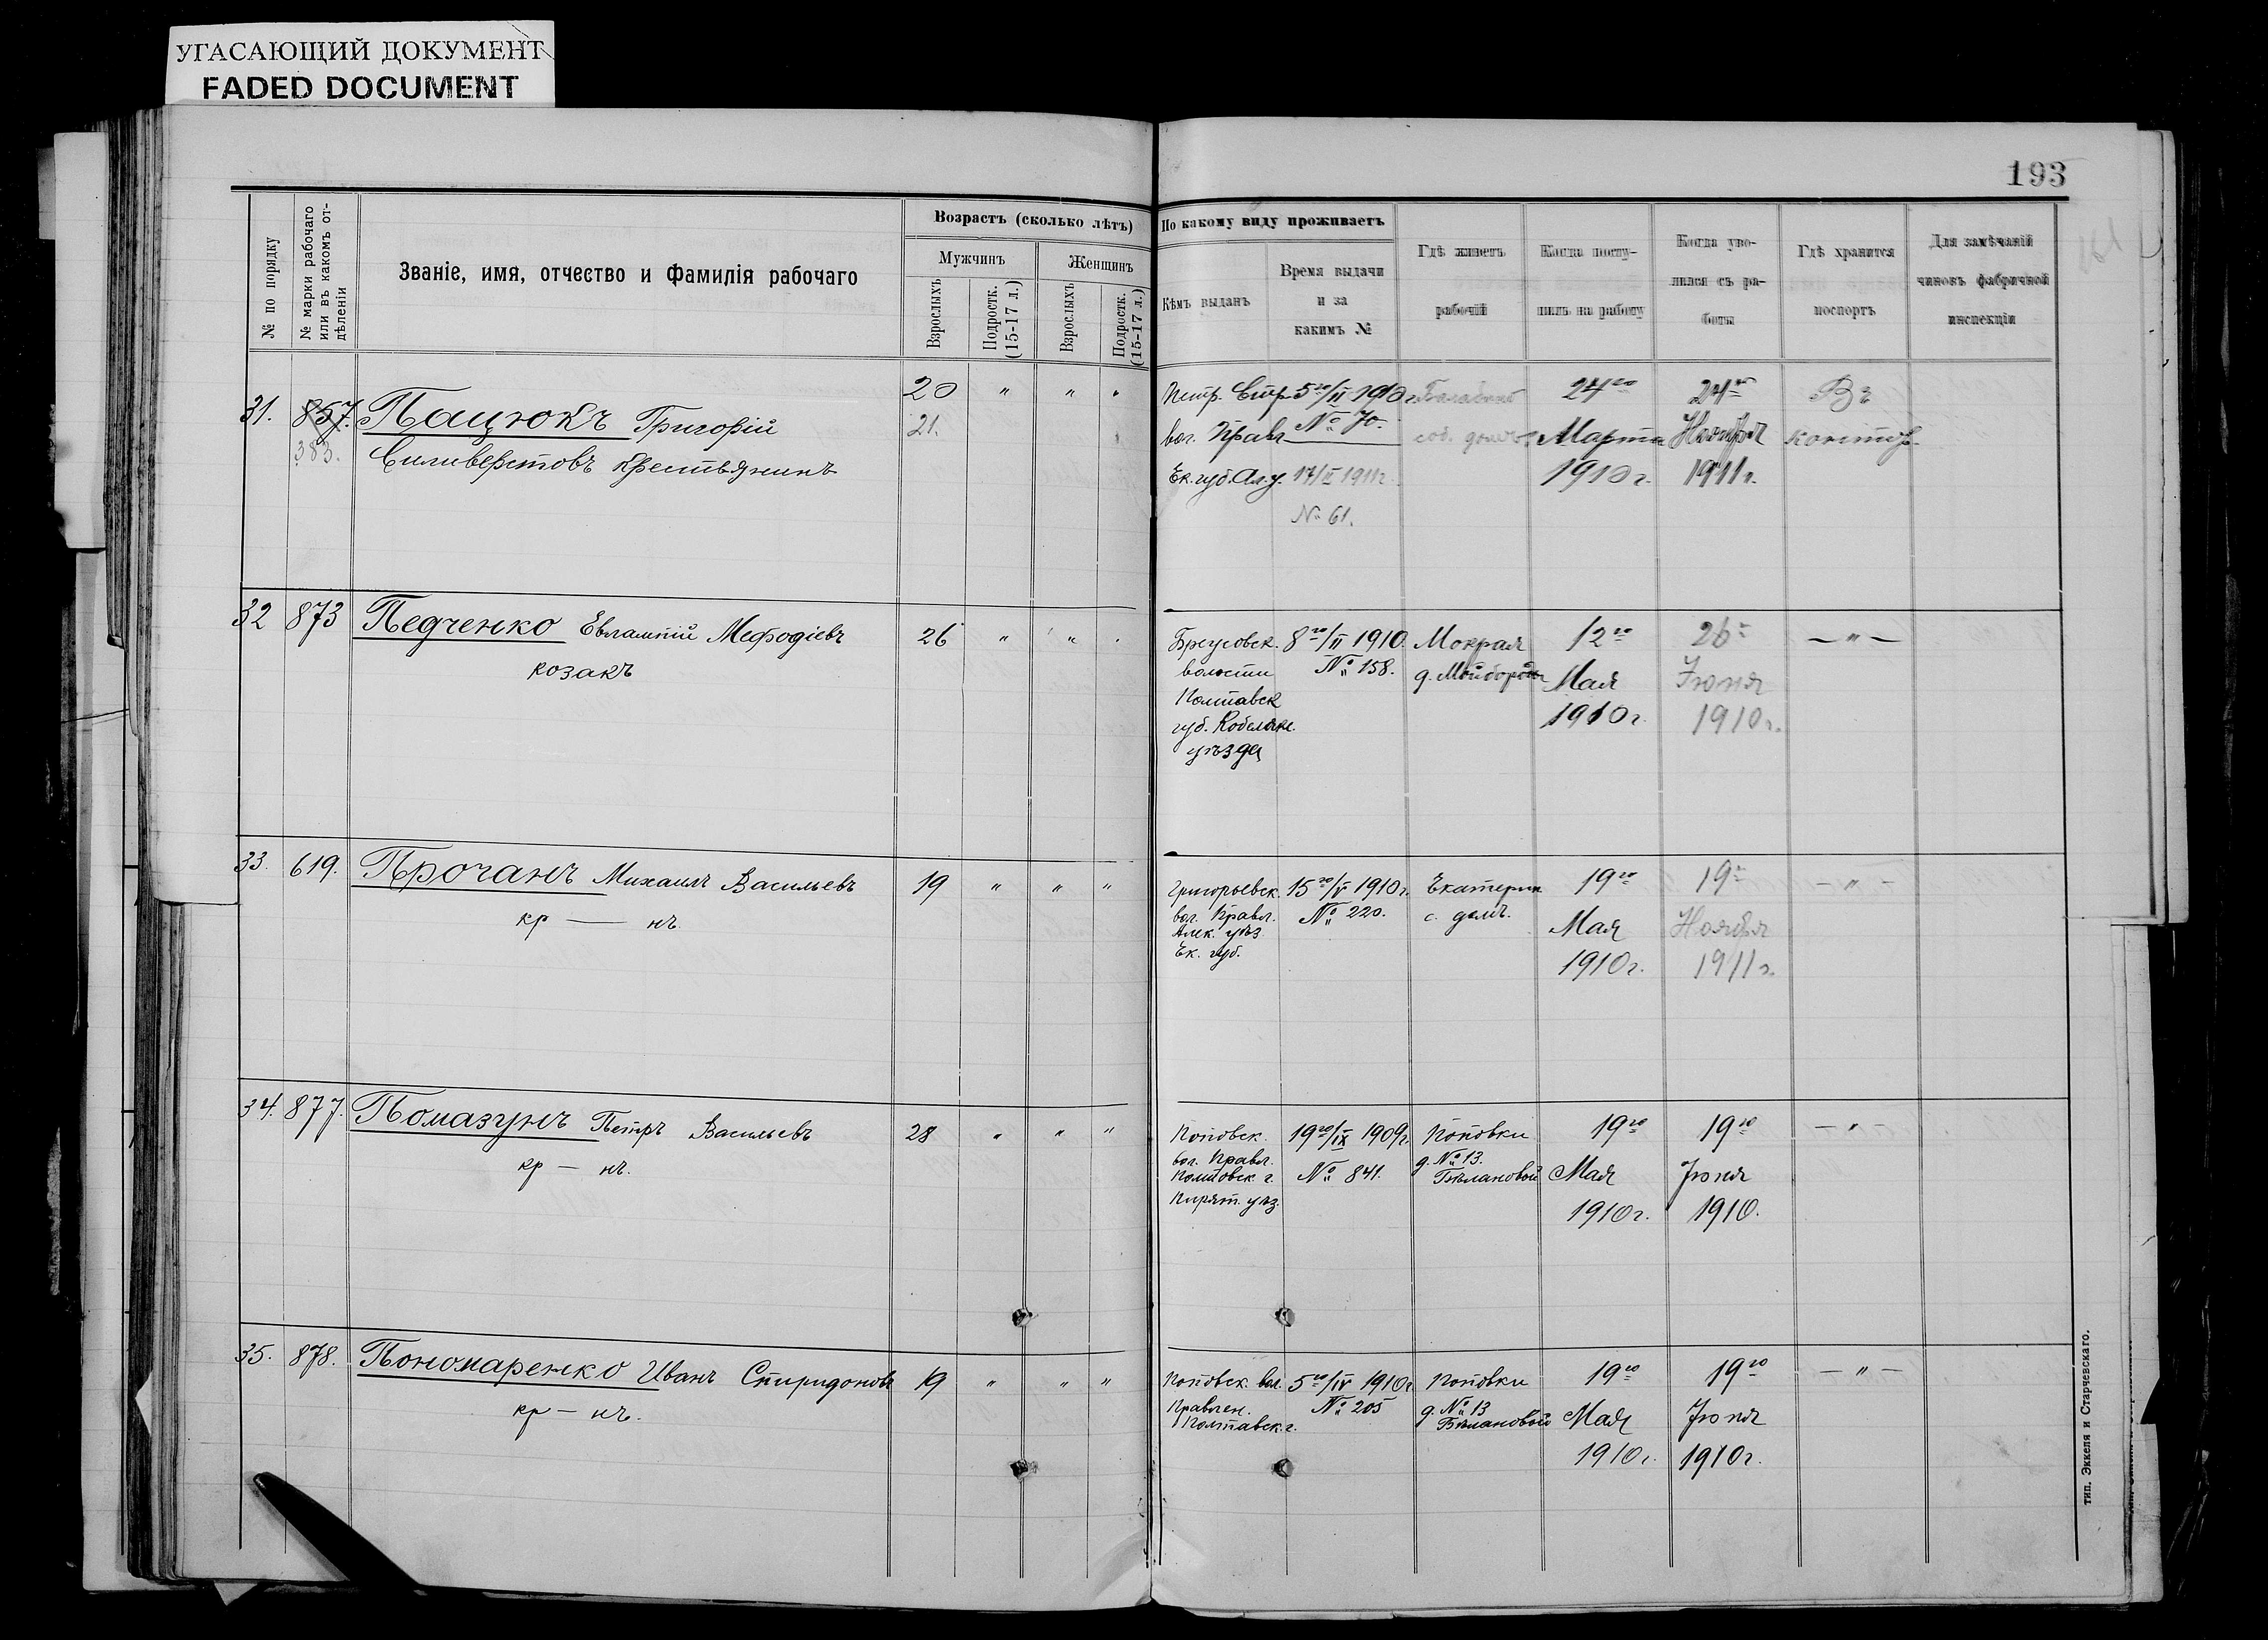 УГАСАЮЩИЙ ДОКУМЕНТ
FADED DOCUMENT
193
№ по порядку
№ марки рабочаго
или въ какомъ от-
дѣленіи
Званіе, имя, отчество и фамилія рабочаго
Возрастъ (сколько лѣтъ)
Мужчинъ
Женщинъ
Взрослыхъ
Подростк.
(15-17 л.)
Взрослыхъ
Подростк.
(15-17 л.)
По какому виду проживаетъ
Кѣмъ выданъ
Время выдачи
и за
какимъ №
Гдѣ живетъ
рабочій
Когда посту-
пилъ на работу
Когда уво-
лился съ ра-
боты
Гдѣ хранится
поспортъ
Для замѣчаній
чиновъ фабричной
инспекціи
31. 857. Пацюкъ Григорій 20 " " " Петр. Стр. 5го/II 1910 г. 24го 24го Въ
383. Силиверстовъ крестьянинъ 21. вол. Правл № 70. соб. домъ Марта Ноября контор.
Ек. губ. Ал. у. 17/II 1911 г. 1910 г. 1911 г.
№ 61.
32 873 Педченко Евлампій Мефодіевъ 26 " " " Бреусовск. 8го/II 1910. Мокрая 12го 26го — " —
козакъ волости № 158. д. Майбороды Мая Іюня
Полтавск 1910 г. 1910 г.
губ. Кобеляк.
уѣзда
33. 619. Прочанъ Михаилъ Васильевъ 19 " " " Григорьевск. 15го/V 1910 г. Екатерин 19го 19го — " —
кр — нъ. вол. Правл. № 220. с. домъ. Мая Ноября
Алек. уѣз. 1910 г. 1911 г.
Ек. губ.
34. 877. Помазунъ Петръ Васильевъ 28 " " " Поповск. 19го/IX 1909 г. Поповки 19го 19го — " —
кр — нъ. вол. Правл. № 841. д. № 13. Мая Іюня
Полтовск. г. Бѣлановой 1910 г. 1910.
Пирят. уѣз.
35. 878. Пономаренко Иванъ Спиридоновъ 19 " " " Поповск. вол. 5го/IV 1910 г. Поповки 19го 19го — " —
кр — нъ. Правлен. № 205 д. № 13 Мая Іюня
Полтавск. г. Бѣлановой 1910 г. 1910 г.
тип. Эккеля и Старчевскаго.